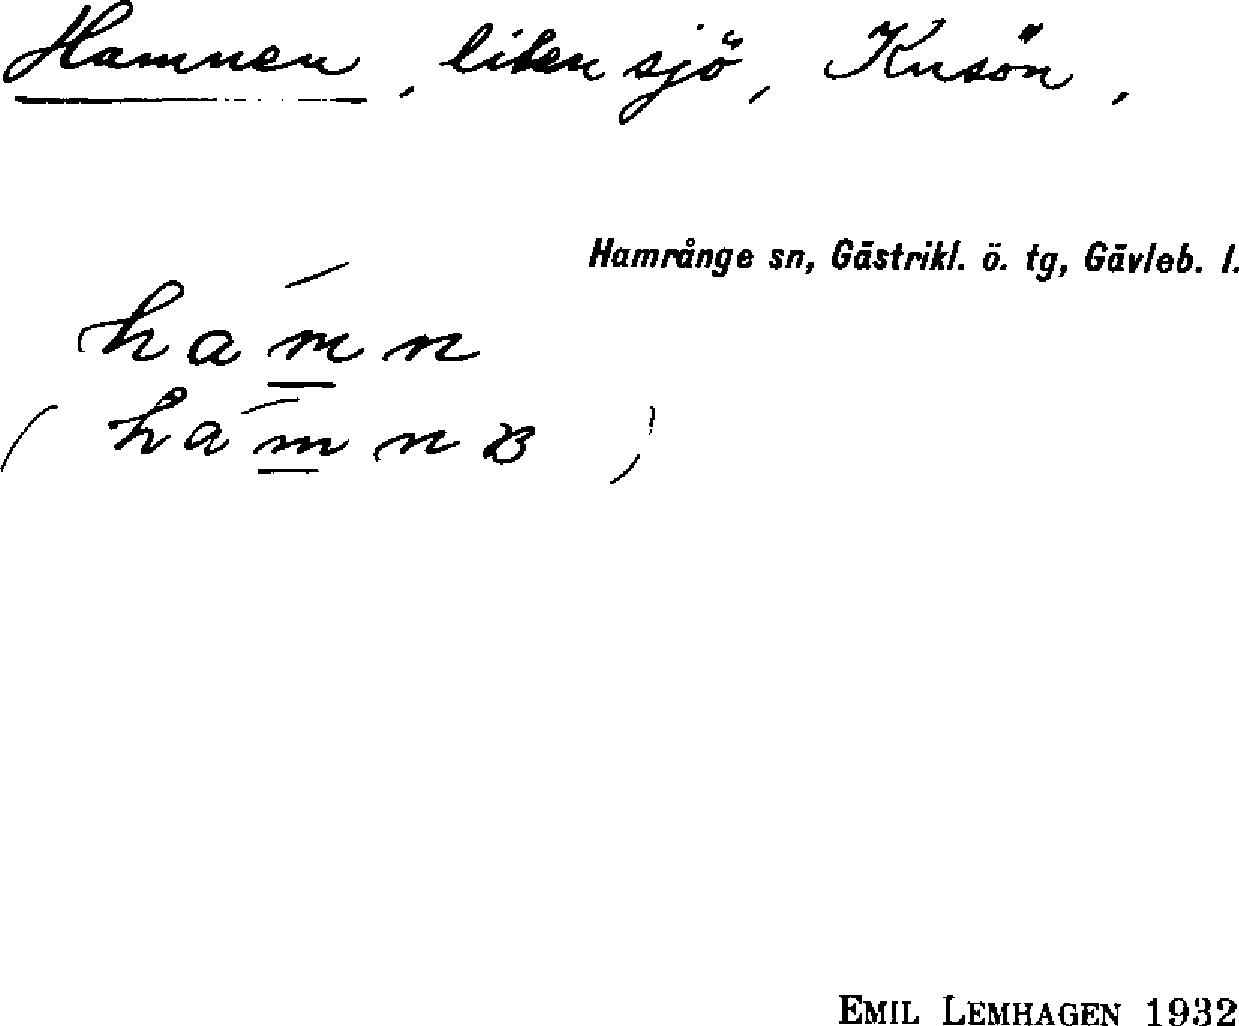 Hamnen, liten sjö, Kusön,
Hamrånge sn, Gästrikl. ö. tg, Gävleb. l.
hamn
(hamnɞ)
EMIL LEMHAGEN 1932